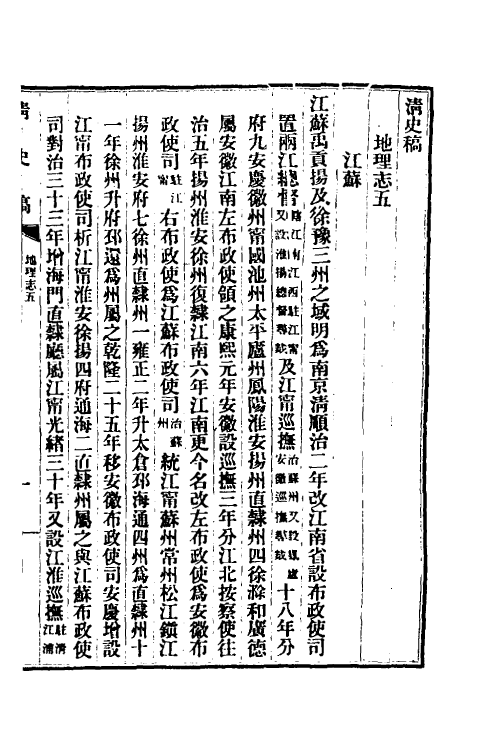 清史稿
地理志五
江蘇
江蘇禹貢揚及徐豫三州之域明爲南京清順治二年改江南省設布政使司
置兩江總督轄江南江西駐江甯又設淮揚總督尋裁及江甯巡撫治蘇州又設鳳廬安徽巡撫尋裁十八年分
府九安慶徽州甯國池州太平廬州鳳陽淮安揚州直隸州四徐滁和廣德
屬安徽江南左布政使領之康熙元年安徽設巡撫三年分江北按察使往
治五年揚州淮安徐州復隸江南六年江南更今名改左布政使爲安徽布
政使司駐江甯右布政使爲江蘇布政使司治蘇州統江甯蘇州常州松江鎭江
揚州淮安府七徐州直隸州一雍正二年升太倉邳海通四州爲直隸州十
一年徐州升府邳還爲州屬之乾隆二十五年移安徽布政使司安慶增設
江甯布政使司析江甯淮安徐揚四府通海二直隸州屬之與江蘇布政使
司對治三十三年增海門直隸廳屬江甯光緒三十年又設江淮巡撫駐清江浦
清史稿
地理志五
一